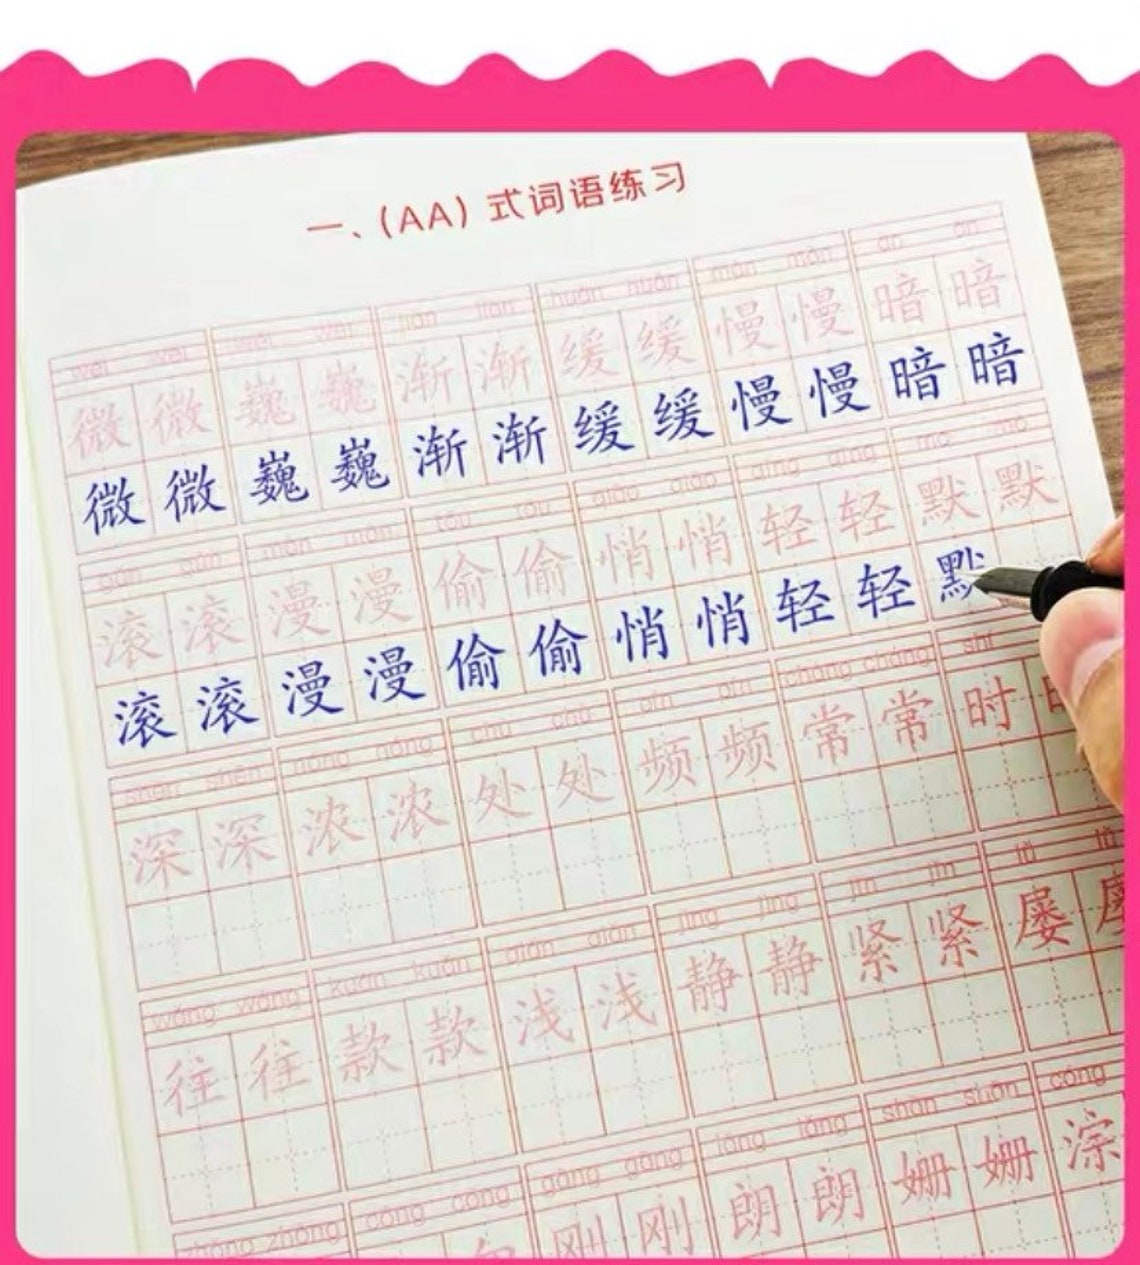 一、(AA) 式词语练习
wēi wēi wēi wēi jiàn jiàn huǎn huǎn màn màn àn àn
微微 巍巍 渐渐 缓缓 慢慢 暗暗
微微 巍巍 渐渐 缓缓 慢慢 暗暗
gǔn gǔn màn màn tōu tōu qiāo qiāo qīng qīng mò mò
滚滚 漫漫 偷偷 悄悄 轻轻 默默
滚滚 漫漫 偷偷 悄悄 轻轻 默
shēn shēn nóng nóng chù chù pín pín cháng cháng shí
深深 浓浓 处处 频频 常常 时
wǎng wǎng kuǎn kuǎn qiǎn qiǎn jìng jìng jǐn jǐn lǚ lǚ
往往 款款 浅浅 静静 紧紧 屡
zhōng zhōng cōng cōng gāng gāng lǎng lǎng shān shān cóng
刚刚 朗朗 姗姗 淙